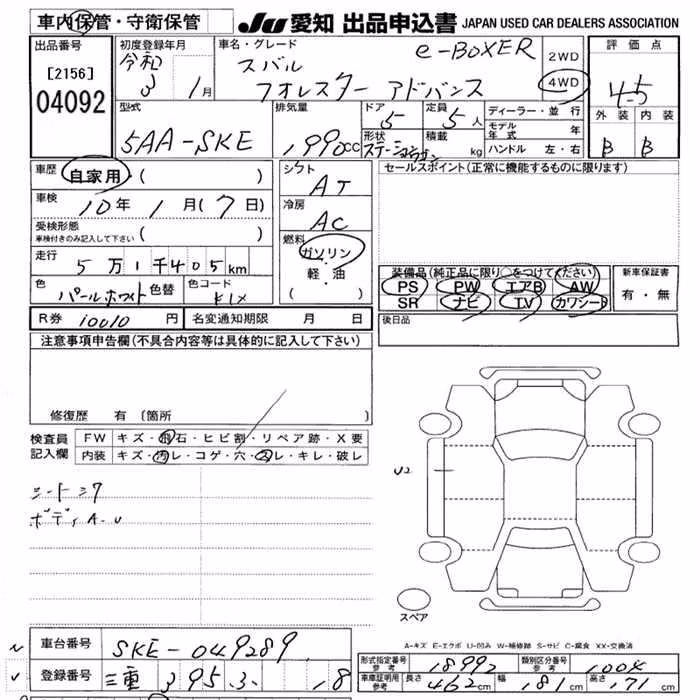 車内保管・守衛保管 JU 愛知 出品申込書 JAPAN USED CAR DEALERS ASSOCIATION
出品番号 初度登録年月 車名・グレード e-BOXER 2WD 評価点
[2156] 令和 スバル 4WD
04092 3 1月 フォレスター アドバンス 4.5
型式 排気量 ドア 定員 ディーラー・並行 外装 内装
5AA-SKE 1990cc 5 5人 モデル年式 年 B B
形状 ステーションワゴン 積載 kg ハンドル 左・右
車歴 自家用 ( ) シフト AT セールスポイント(正常に機能するものに限ります)
車検 10年 1月(7日) 冷房 AC
受検形態 車検付きのみ記入して下さい ( ) 燃料
走行 5万1千405km ガソリン・軽・油 ( )
装備品(純正品に限り○をつけてください) 新車保証書
PS PW エアB AW 有・無
SR ナビ TV カワシート
色 パールホワイト 色替 色コード K1X
R券 10010円 名変通知期限 月 日 後日品
注意事項申告欄(不具合内容等は具体的に記入して下さい)
修復歴 有 (箇所 )
検査員 FW キズ・飛石・ヒビ割・リペア跡・X要
記入欄 内装 キズ・汚レ・コゲ・穴・スレ・キレ・破レ
U2
シートシワ
ボディA-U
スペア
A-キズ E-エクボ U-凹み W-補修跡 S-サビ C-腐食 XX-交換済
車台番号 SKE-049289
登録番号 三重 395 18
形式指定番号 参考 18992 類別区分番号 参考 1004
車庫証明用 参考 長さ 462cm 幅 181cm 高さ 171cm